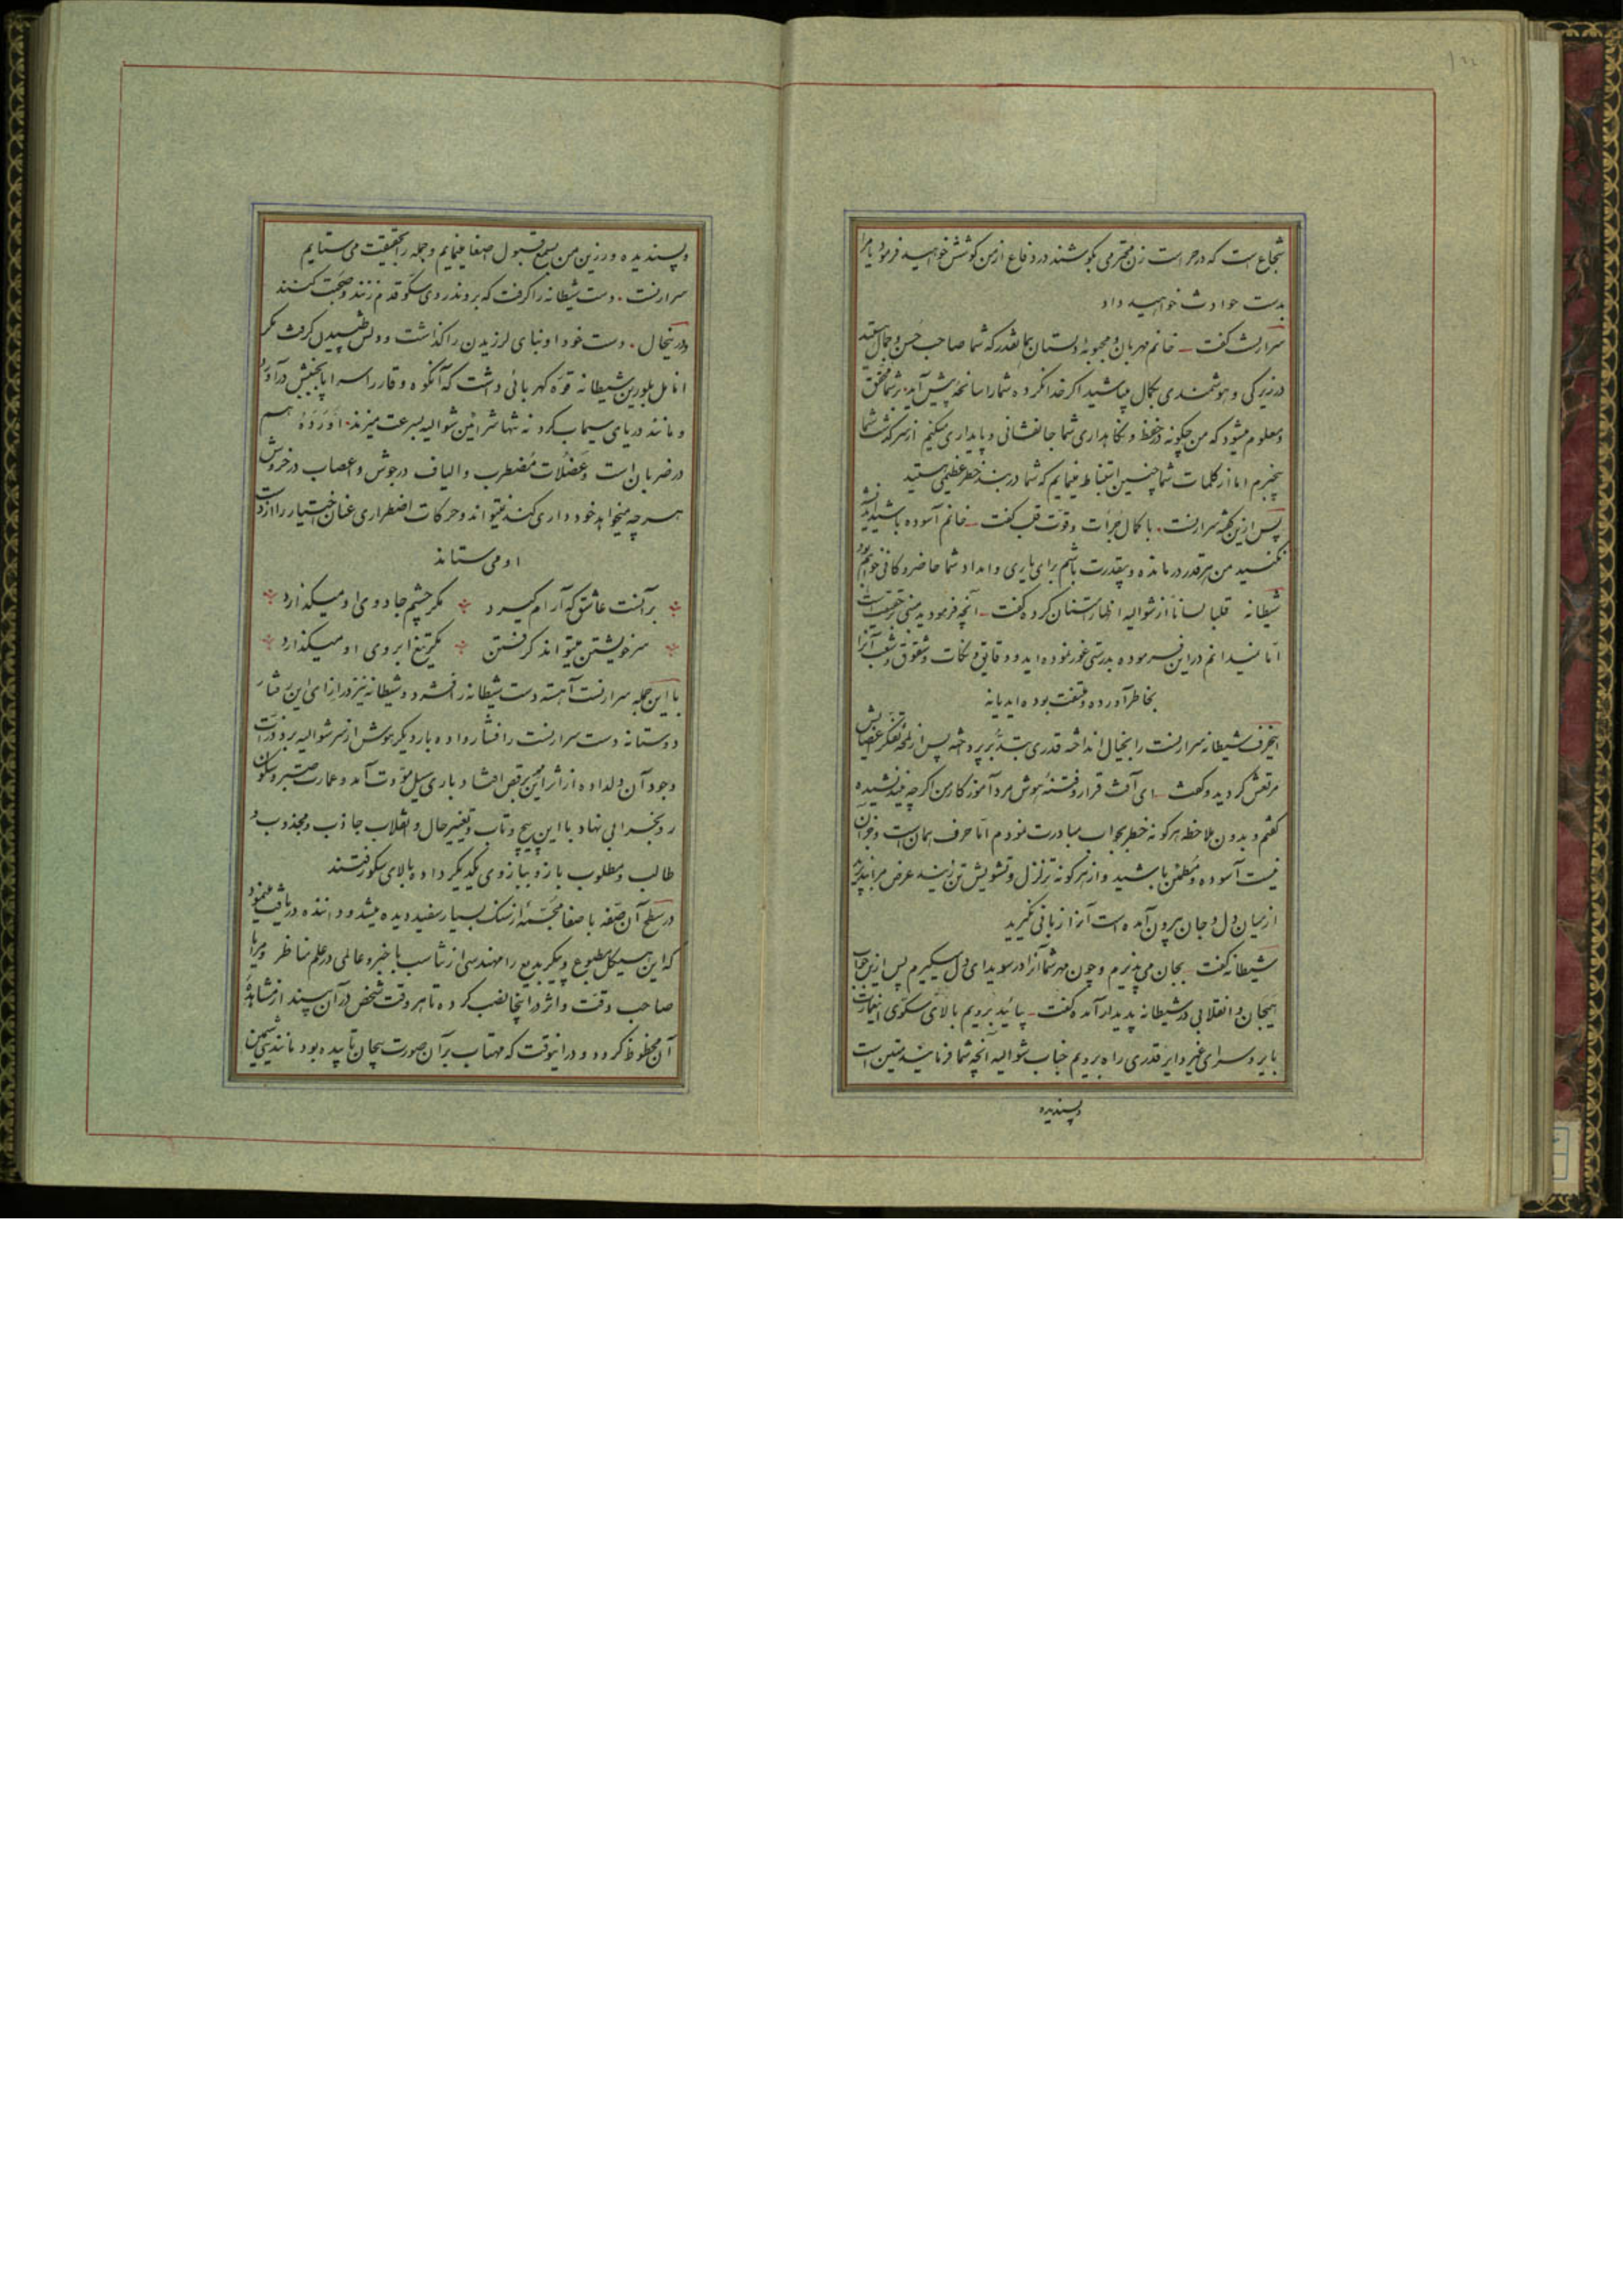 شجاع است که در حراست زن محترمی بکوشند در دفاع از من کوشش خواهید فرمود یا مرا
بدست حوادث خواهید داد
سرارنست گفت – خانم مهربان و محبوبه دلستان بهمانقدر که شما صاحب حسن و جمال هستید
در زیرکی و هوشمندی بکمال میباشید اگر خدا نکرده شما را سانحه پیش آید بر شما محقق
و معلوم میشود که من چگونه در حفظ و نگاهداری شما جانفشانی و پایداری میکنم از سرگذشت شما
بیخبرم اما از کلمات شما چنین استنباط مینمایم که شما در بند خطر عظیمی هستید
پس از این نکته سرارنست، با کمال جرأت و قوت قلب گفت – خانم آسوده باشید اندیشه
نکنید من هر قدر درمانده و بیقدرت باشم برای یاری و امداد شما حاضر و کافی خواهم بود
شیطانه قلبا لسانا از شوالیه اظهار امتنان کرده گفت – آنچه فرمودید مبنی بر حقیقت است
اما نمیدانم در این فرموده بدرستی غور نموده اید و دقایق و نکات و شقوق و شعب آنرا
بخاطر آورده و ملتفت بوده اید یا نه
اینحرف شیطانه سرارنست را بخیال انداخته قدری بتدبر پرداخته پس از لمحه تفکر اعضایش
مرتعش گردید و گفت – ای آفت قرار و فتنه هوش مرد آموزگار من اگر چه نیندیشیده
گفتم و بدون ملاحظه هر گونه خطر بجواب مبادرت نمودم اما حرف همان است و جز آن
نیست آسوده و مطمئن باشید و از هر گونه تزلزل و تشویش تن زنید عرض مرا بپذیرید
از میان دل و جان بیرون آمده است آنرا زبانی نگیرید
شیطانه گفت – بجان می پذیرم و چون مهر شما آنرا در سویدای دل میگیرم پس از این جواب
هیجان و انقلابی در شیطانه پدیدار آمده گفت – بیائید برویم بالای سکوی اینعمارت
بایر و سرای غیر دایر قدری راه برویم جناب شوالیه آنچه شما فرمائید متین است
و پسندیده
و پسندیده و رزین من بسمع قبول اصغا مینمایم و جمله را بحقیقت می ستایم
سرارنست، دست شیطانه را گرفت که بروند روی سکو قدم زنند و صحبت کنند
در اینحال، دست خود او بنای لرزیدن را گذاشت و دلش طپیدن گرفت مگر
انامل بلورین شیطانه قوه کهربائی داشت که آنگوه وقار را سراپا بجنبش درآورد
و مانند دریای سیماب کرد نه تنها شرائین شوالیه بسرعت میزند، اورده هم
در ضربان است و عضلات مضطرب و الیاف در جوش و اعصاب در خروش
هر چه میخواهد خودداری کند نمیتواند و حرکات اضطراری عنان اختیار را از دست
او می ستاند
بر آنست عاشق که آرام گیرد ❖ مگر چشم جادوی او میگذارد
سر خویشتن میتواند گرفتن ❖ مگر تیغ ابروی او میگذارد
با این جمله سرارنست آهسته دست شیطانه را فشرد و شیطانه نیز در ازای این فشار
دوستانه دست سرارنست را فشار داده بار دیگر هوش از سر شوالیه برد ذرات
وجود آن دلداده از اثر این برقص افتاد باری سیل مودت آمد و عمارت صبر و سکون
رو بخرابی نهاد با این پیچ و تاب و تغییر حال و انقلاب جاذب و مجذوب و
طالب و مطلوب بازو ببازوی یکدیگر داده بالای سکو رفتند
در سطح آن صفه با صفا مجسمه از سنگ بسیار سفید دیده میشد و داننده دریافت مینمود
که این هیکل مطبوع و پیکر بدیع را مهندسی از تناسب با خبر و عالمی در علم مناظر و مرایا
صاحب وقت و اثر در اینجا نصب کرده تا هر وقت شخص در آن بیند از مشاهده
آن محظوظ گردد و در اینوقت که مهتاب بر آن صورت بیجان تابیده بود مانند سیمین